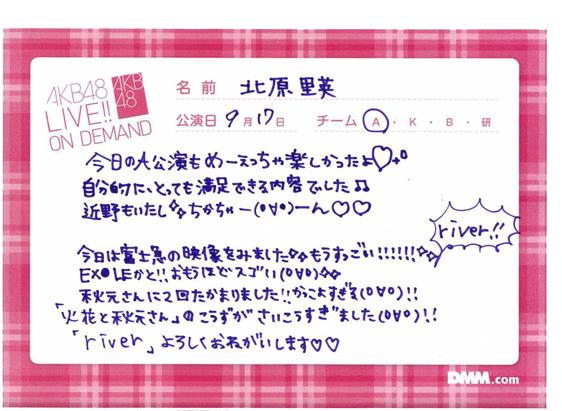 AKB48
LIVE!!
ON DEMAND
AKB
48
名前 北原里英
公演日 9月17日 チーム A・K・B・研
今日のA公演もめーえっちゃ楽しかったよ♡+°
自分的に、とっても満足できる内容でした♫
近野もいたし✧✧ちかちゃー(°∀°)ーん♡♡
river!!
今日は富士急の映像をみました✧✧もうすっごい!!!!!!✧✧
EX●LEかと!!おもうほどスゴい(0∀0)✧✧
秋元さんに2回たかまりました!!かっこよすぎる(0∀0)!!
「火花と秋元さん」のこうずがさいこうすぎました(0∀0)!!
「river」よろしくおねがいします♡♡
DMM.com